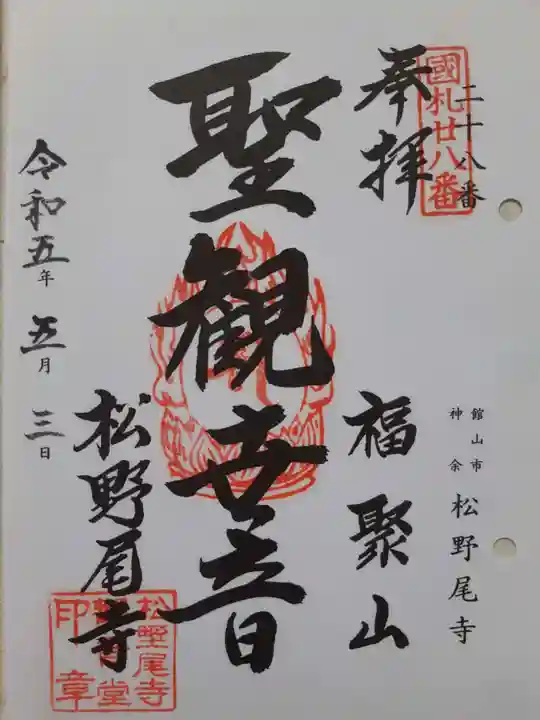 國札廿八番
二十八番
奉拝
館山市
神余
松野尾寺
福聚山
聖観世音
松野尾寺
令和五年五月三日
松野尾寺
堂
印章